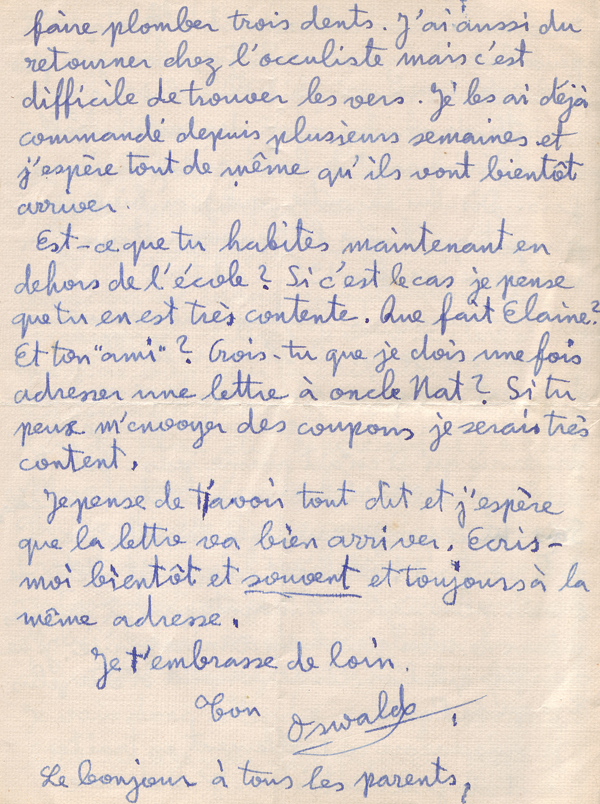 faire plomber trois dents. J'ai aussi du
retourner chez l'occuliste mais c'est
difficile de trouver les vers. Je les ai déjà
commandé depuis plusieurs semaines et
j'espère tout de même qu'ils vont bientôt
arriver.
Est-ce que tu habites maintenant en
dehors de l'école? Si c'est le cas je pense
que tu en est très contente. Que fait Elaine?
Et ton "ami"? Crois-tu que je dois une fois
adresser une lettre à oncle Nat? Si tu
peux m'envoyer des coupons je serais très
content.
Je pense de t'avoir tout dit et j'espère
que la lettre va bien arriver. Ecris-
moi bientôt et souvent et toujours à la
même adresse.
Je t'embrasse de loin.
Ton Oswaldo.
Le bonjour à tous les parents.